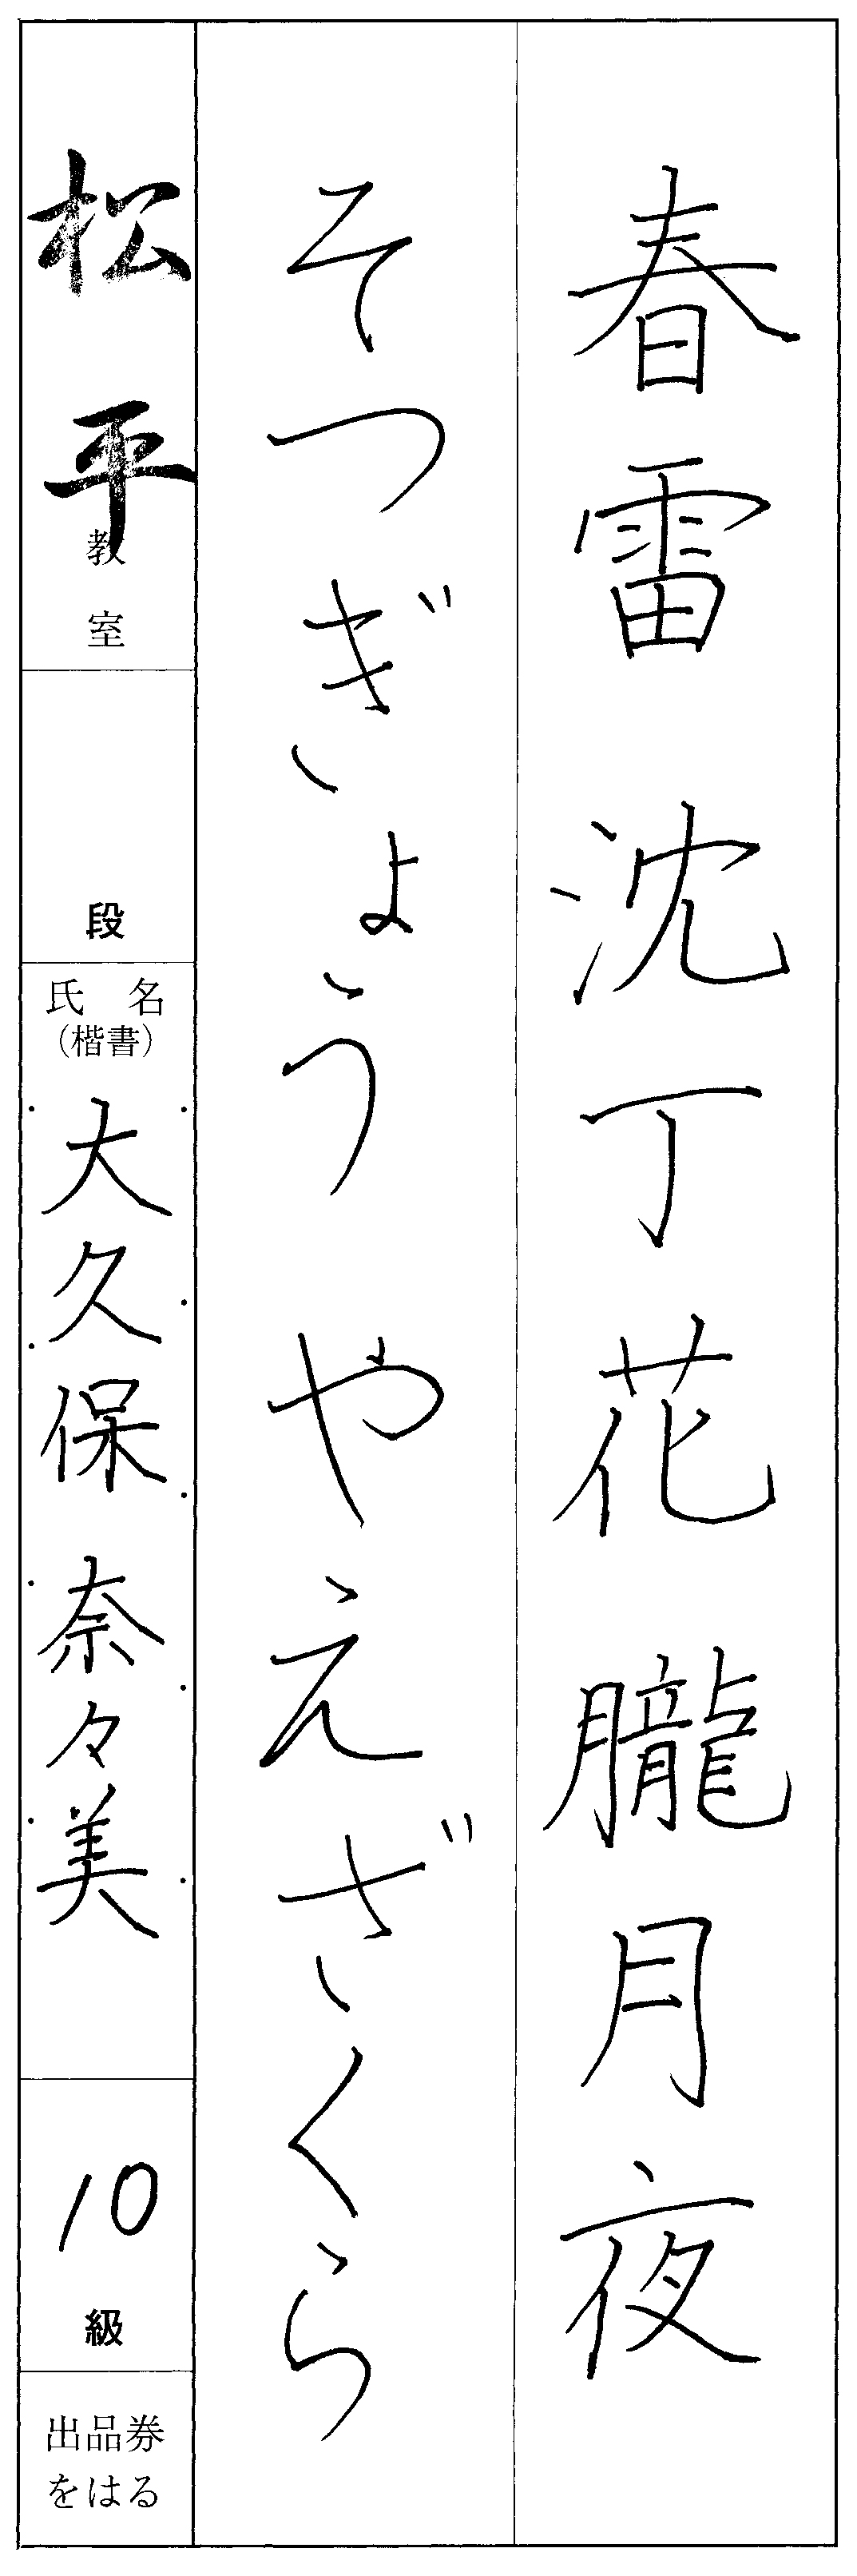 春雷 沈丁花 朧月夜
そつぎょう やえざくら
松平
教室
段
氏名
(楷書)
大久保 奈々美
10
級
出品券
をはる